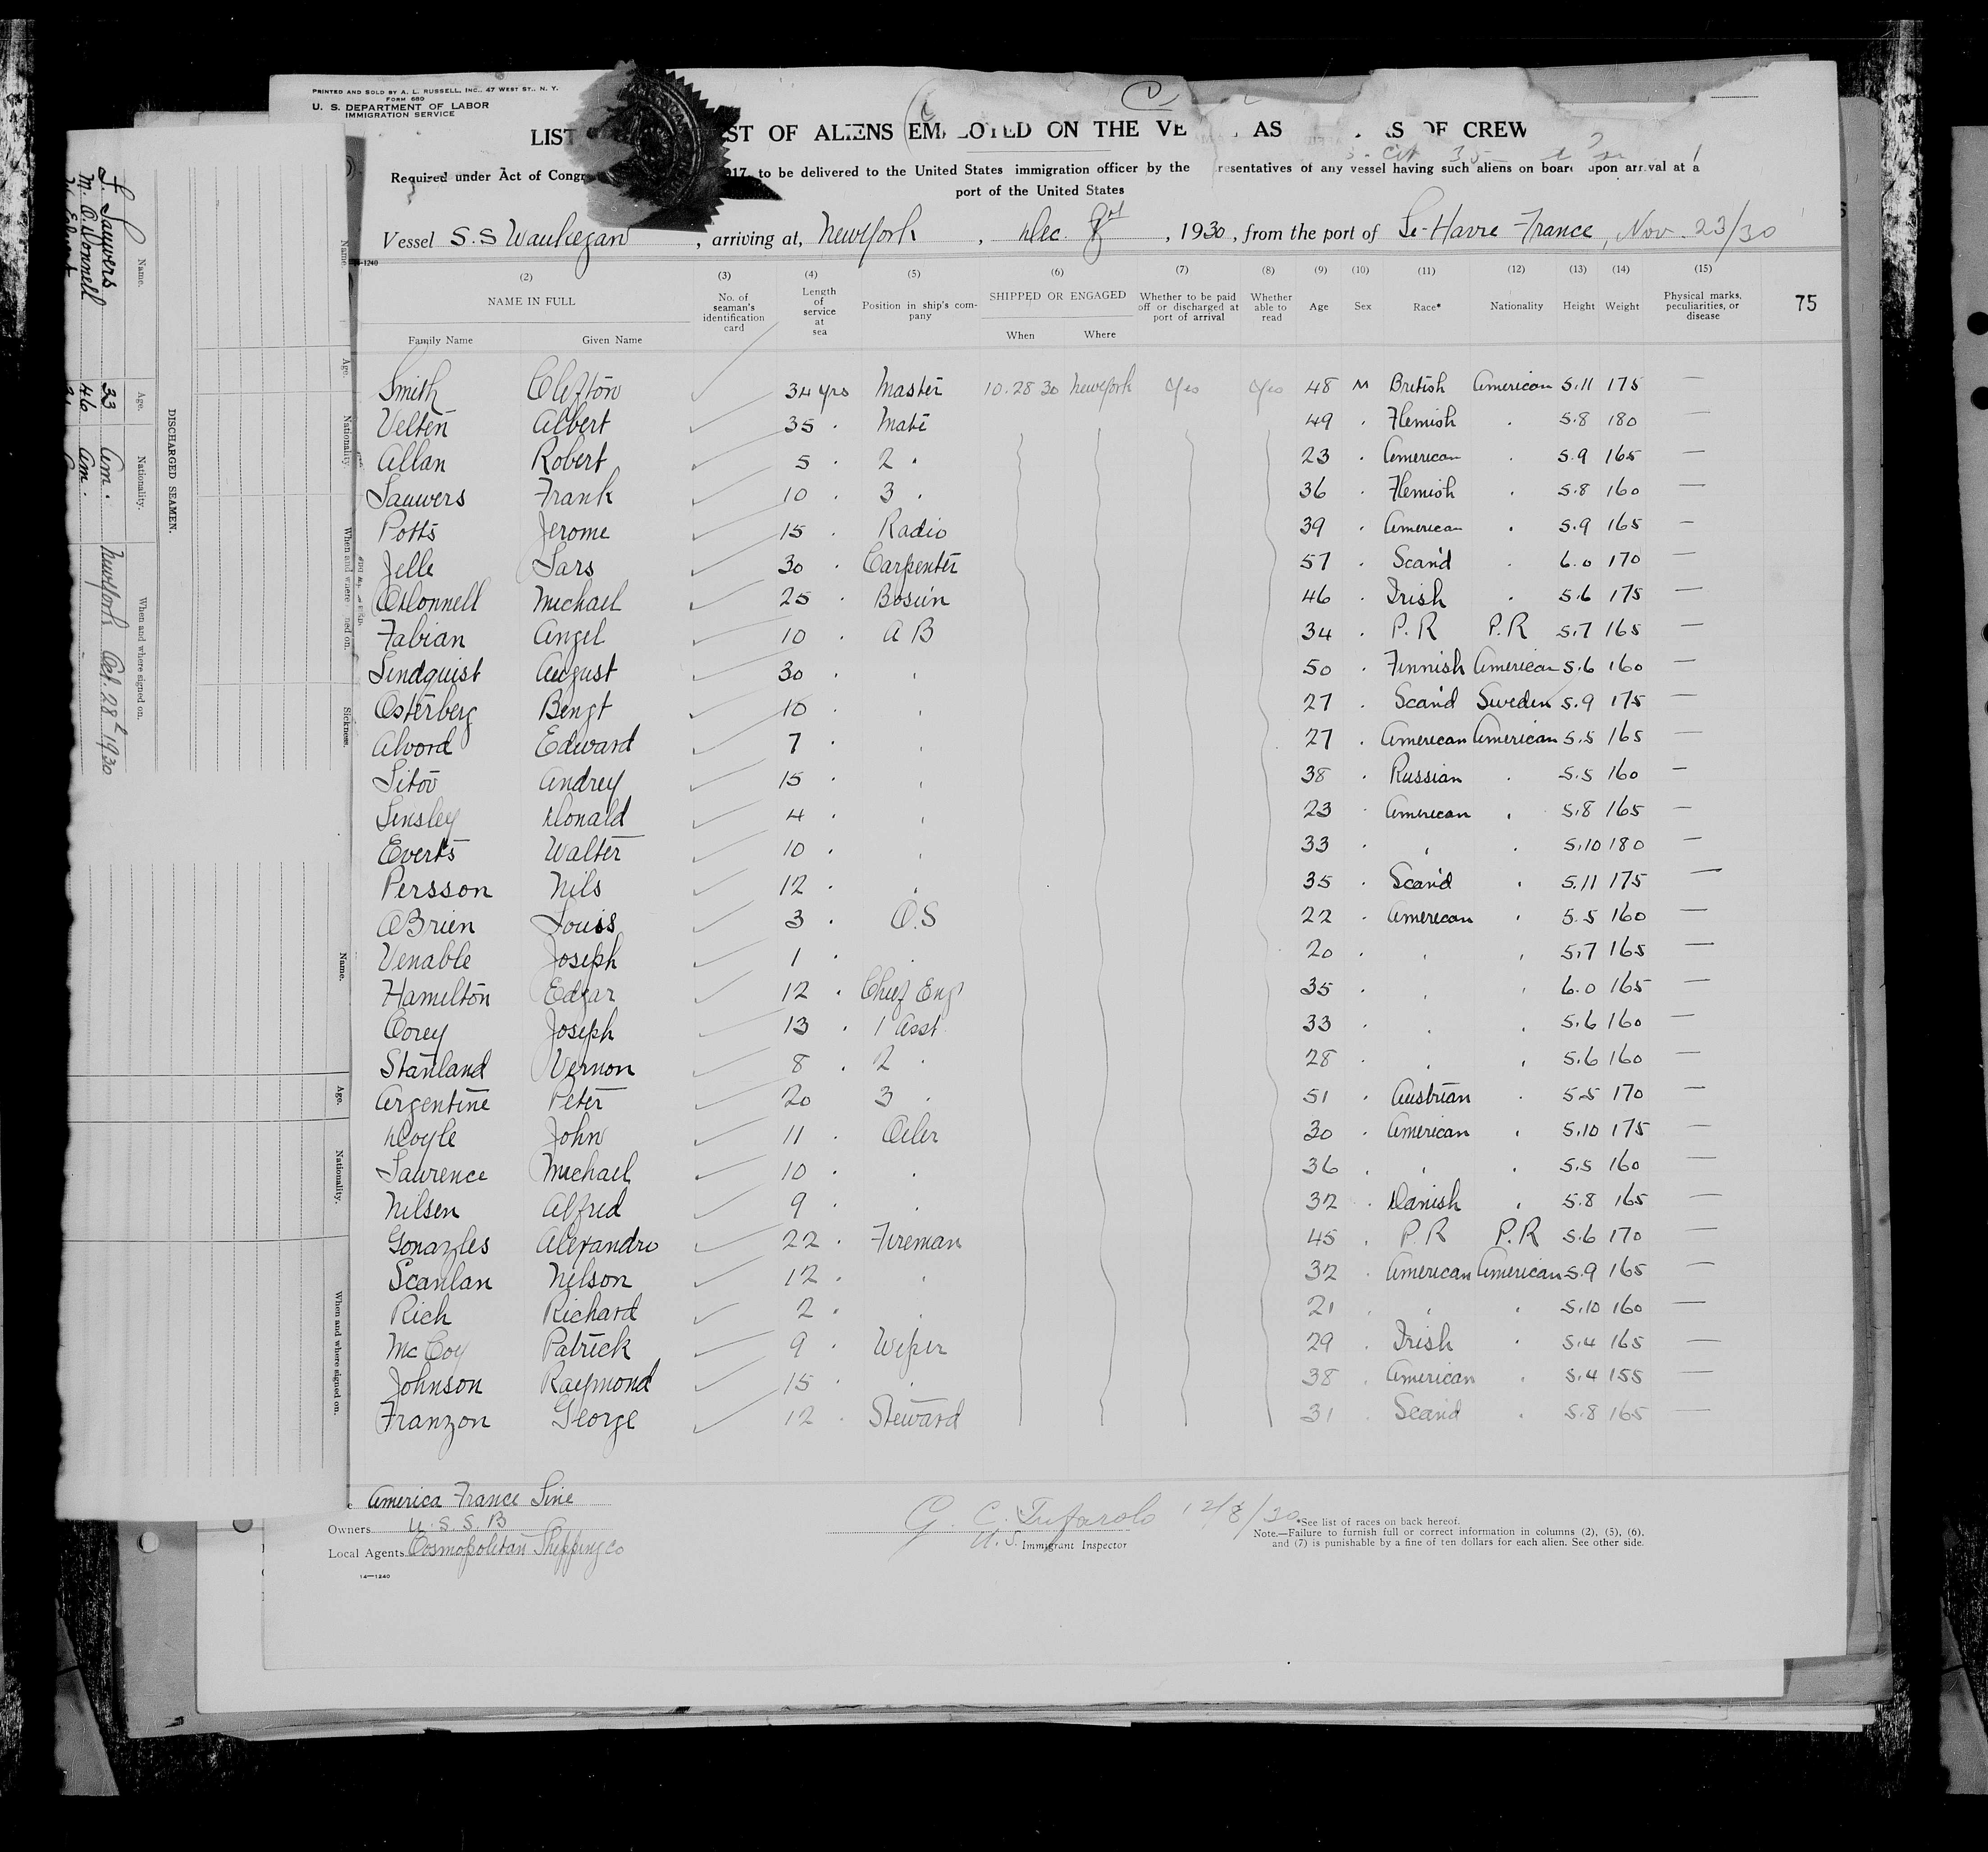 PRINTED AND SOLD BY A. L. RUSSELL, INC., 47 WEST ST., N. Y.
FORM 680
U. S. DEPARTMENT OF LABOR
IMMIGRATION SERVICE
LIST ST OF ALIENS EMPLOYED ON THE VE AS RS OF CREW
Required under Act of Congr 917, to be delivered to the United States immigration officer by the resentatives of any vessel having such aliens on board upon arrival at a
port of the United States
Vessel S.S Waukegan, arriving at, New York, Dec. 8, 1930, from the port of Le-Havre France, Nov. 23/30
(2) (3) (4) (5) (6) (7) (8) (9) (10) (11) (12) (13) (14) (15)
NAME IN FULL No. of seaman's identification card Length of service at sea Position in ship's company SHIPPED OR ENGAGED Whether to be paid off or discharged at port of arrival Whether able to read Age Sex Race* Nationality Height Weight Physical marks, peculiarities, or disease 75
Family Name Given Name When Where
Smith Clifton 34 yrs Master 10.28 30 New York Yes Yes 48 M British American 5.11 175 —
Velten Albert 35 . Mate 49 . Flemish . 5.8 180 —
Allan Robert 5 . 2 . 23 . American . 5.9 165 —
Lauwers Frank 10 . 3 . 36 . Flemish . 5.8 160 —
Potts Jerome 15 . Radio 39 . American . 5.9 165 —
Jelle Lars 30 . Carpenter 57 . Scand . 6.0 170 —
ODonnell Michael 25 . Bosun 46 . Irish . 5.6 175 —
Fabian Angel 10 . A B 34 . P.R P.R 5.7 165 —
Lindquist August 30 . . 50 . Finnish American 5.6 160 —
Osterberg Bengt 10 . . 27 . Scand Sweden 5.9 175 —
Alvord Edward 7 . . 27 . American American 5.5 165 —
Sitov Andrey 15 . . 38 . Russian . 5.5 160 —
Linsley Donald 4 . . 23 . American . 5.8 165 —
Everts Walter 10 . . 33 . . . 5.10 180 —
Persson Nils 12 . . 35 . Scand . 5.11 175 —
OBrien Louis 3 . O.S 22 . American . 5.5 160 —
Venable Joseph 1 . . 20 . . . 5.7 165 —
Hamilton Edgar 12 . Chief Eng 35 . . . 6.0 165 —
Corey Joseph 13 . 1 Asst 33 . . . 5.6 160 —
Stanland Vernon 8 . 2 . 28 . . . 5.6 160 —
Argentine Peter 20 3 . 51 . Austrian . 5.5 170 —
Doyle John 11 . Oiler 30 . American . 5.10 175 —
Laurence Michael 10 . . 36 . . . 5.5 160 —
Nilsen Alfred 9 . . 32 . Danish . 5.8 165 —
Gonazles Alexandro 22 . Fireman 45 . P.R P.R 5.6 170 —
Scanlan Nelson 12 . . 32 . American American 5.9 165 —
Rich Richard 2 . . 21 . . . 5.10 160 —
McCoy Patrick 9 . Wiper 29 . Irish . 5.4 165 —
Johnson Raymond 15 . . 38 . American . 5.4 155 —
Franzon George 12 . Steward 31 . Scand . 5.8 165 —
America France Line
Owners U.S.S.B
Local Agents Cosmopolitan Shipping Co
14—1240
G. C. Tufarolo 12/8/30
U.S. Immigrant Inspector
*See list of races on back hereof.
Note.—Failure to furnish full or correct information in columns (2), (5), (6),
and (7) is punishable by a fine of ten dollars for each alien. See other side.
DISCHARGED SEAMEN.
Name. Age. Nationality. When and where signed on.
F. Lauwers 33 Am. New York Oct. 28th 1930
M. O.Donnell 46 Am.
Name. Age. Nationality. When and where signed on. Sickness.
Name. Age. Nationality. When and where signed on.